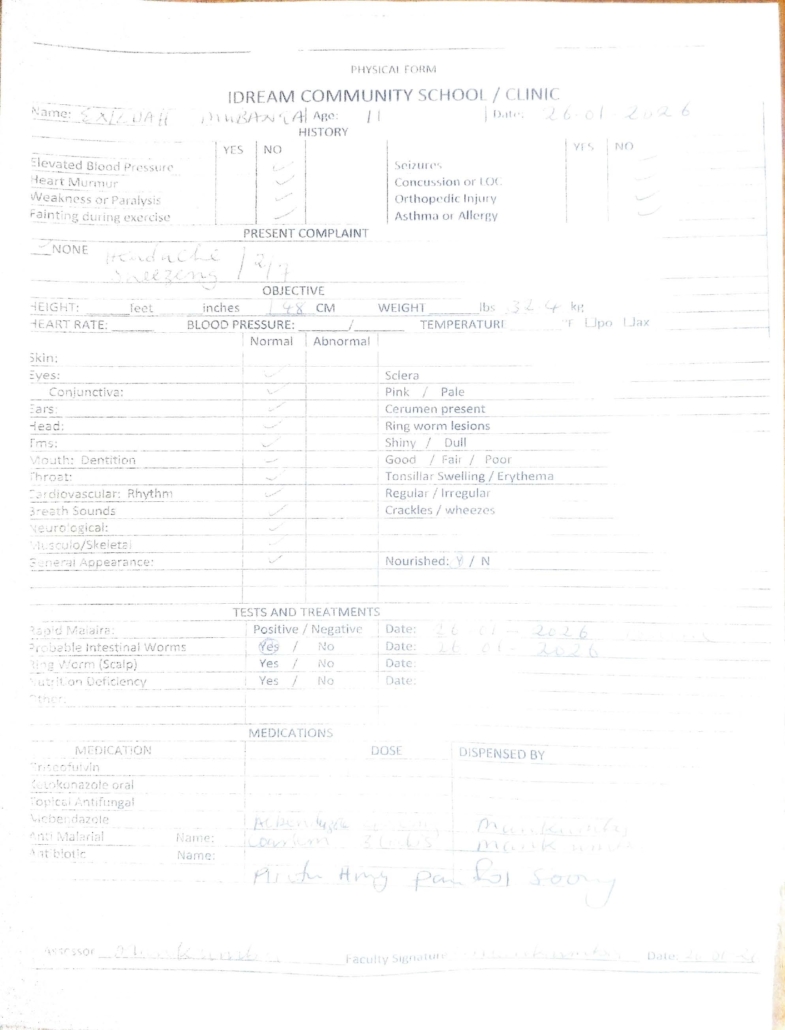 PHYSICAL FORM
IDREAM COMMUNITY SCHOOL / CLINIC
Name: Age: 11 Date: 26-01-2026
HISTORY
YES NO YES NO
Elevated Blood Pressure Seizures
Heart Murmur Concussion or LOC
Weakness or Paralysis Orthopedic Injury
Fainting during exercise Asthma or Allergy
PRESENT COMPLAINT
NONE Headache
Sneezeng 2/7
OBJECTIVE
HEIGHT: feet inches 148 CM WEIGHT lbs 32.4 kg
HEART RATE: BLOOD PRESSURE: / TEMPERATURE F po ax
Normal Abnormal
Skin:
Eyes: Sclera
Conjunctiva: Pink / Pale
Ears: Cerumen present
Head: Ring worm lesions
Tms: Shiny / Dull
Mouth: Dentition Good / Fair / Poor
Throat: Tonsillar Swelling / Erythema
Cardiovascular: Rhythm Regular / Irregular
Breath Sounds Crackles / wheezes
Neurological:
Musculo/Skeletal
General Appearance: Nourished: Y / N
TESTS AND TREATMENTS
Rapid Malaira: Positive / Negative Date: 26 01 2026
Probable Intestinal Worms Yes / No Date: 26 01 2026
Ring Worm (Scalp) Yes / No Date:
Nutrition Deficiency Yes / No Date:
Other:
MEDICATIONS
MEDICATION DOSE DISPENSED BY
Griseofulvin
Ketokonazole oral
Topical Antifungal
Mebendazole
Anti Malarial Name:
Antibiotic Name:
Assessor Faculty Signature Date 26 01